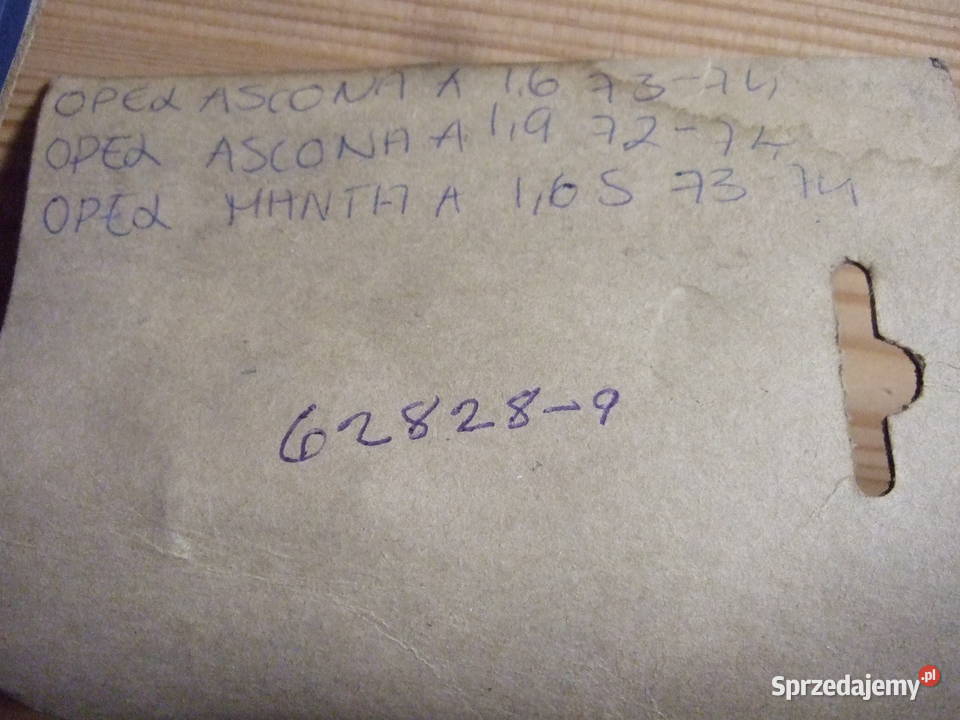 OPEL ASCONA A 1,6 73-74
OPEL ASCONA A 1,9 72-74
OPEL MANTA A 1,6 S 73 74
62828-9
Sprzedajemy.pl